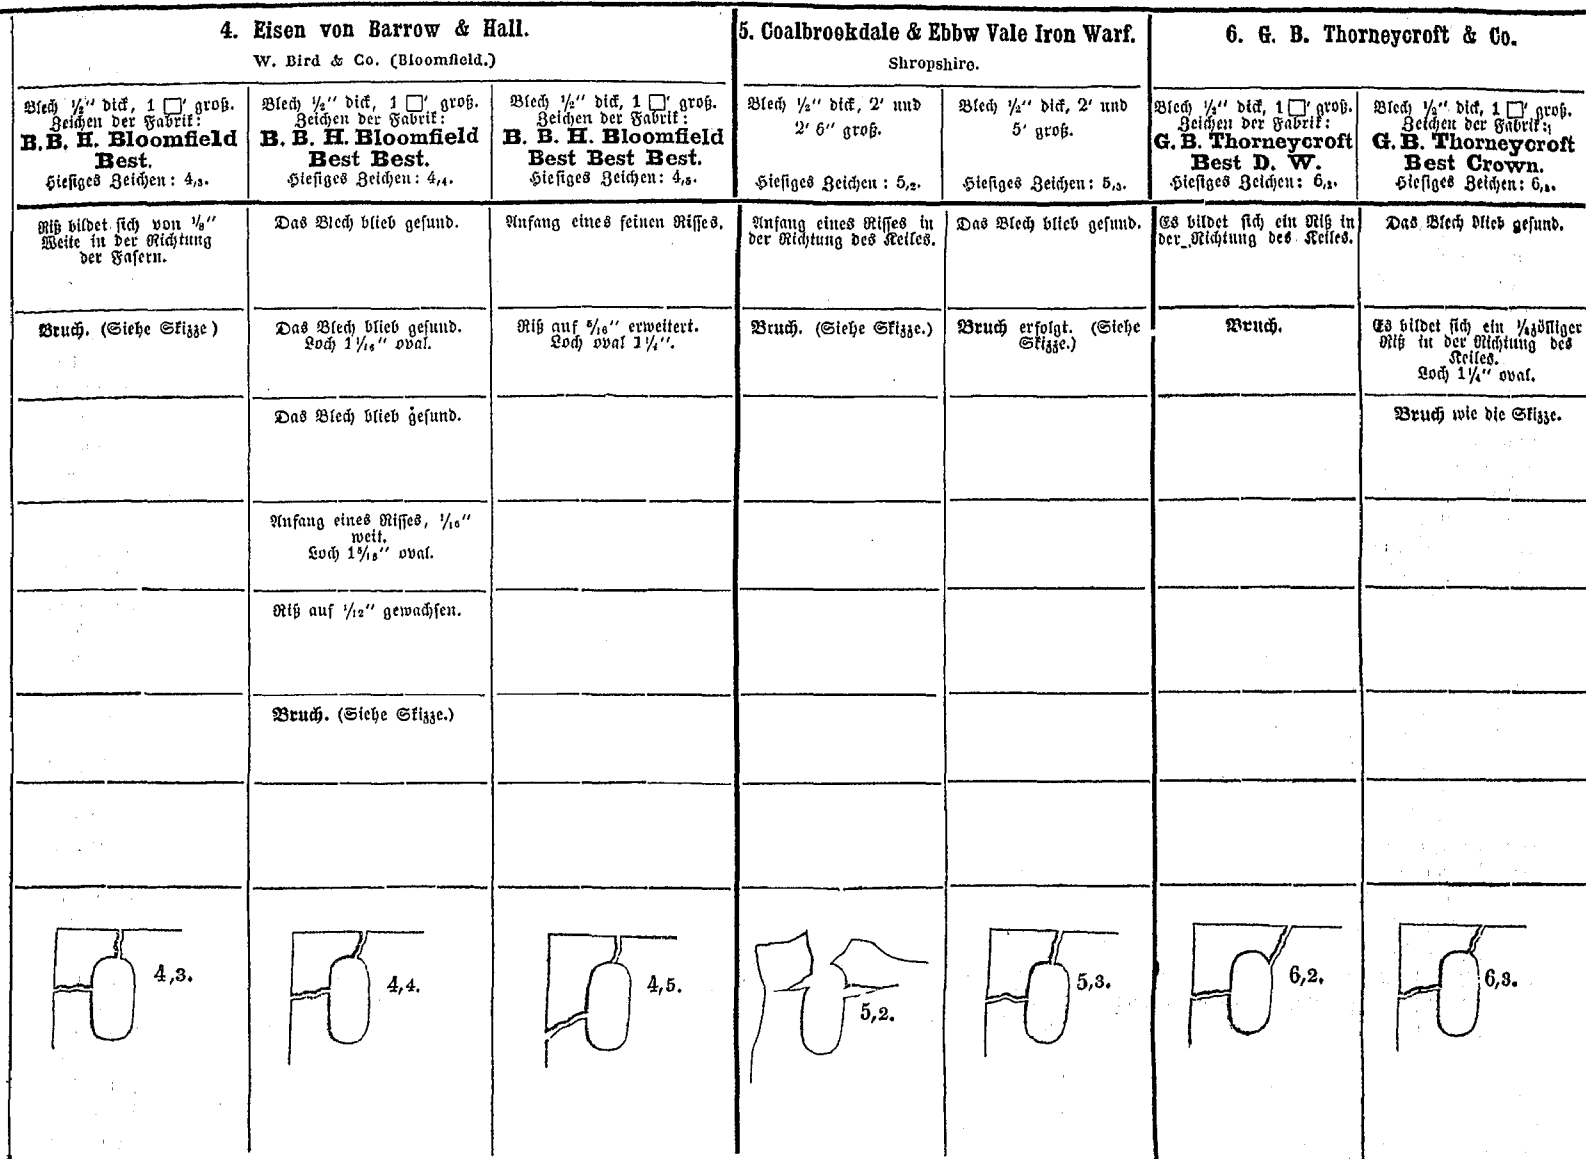 4. Eisen von Barrow & Hall.
W. Bird & Co. (Bloomfield.)
5. Coalbrookdale & Ebbw Vale Iron Warf.
Shropshire.
6. G. B. Thorneycroft & Co.
Blech ½" dick, 1 □' groß.
Zeichen der Fabrik:
B. B. H. Bloomfield
Best.
Hiesiges Zeichen: 4,3.
Blech ½" dick, 1 □' groß.
Zeichen der Fabrik:
B. B. H. Bloomfield
Best Best.
Hiesiges Zeichen: 4,4.
Blech ½" dick, 1 □' groß.
Zeichen der Fabrik:
B. B. H. Bloomfield
Best Best Best.
Hiesiges Zeichen: 4,5.
Blech ½" dick, 2' und
2' 6" groß.
Hiesiges Zeichen: 5,2.
Blech ½" dick, 2' und
5' groß.
Hiesiges Zeichen: 5,3.
Blech ½" dick, 1 □' groß.
Zeichen der Fabrik:
G. B. Thorneycroft
Best D. W.
Hiesiges Zeichen: 6,2.
Blech ½" dick, 1 □' groß.
Zeichen der Fabrik:
G. B. Thorneycroft
Best Crown.
Hiesiges Zeichen: 6,3.
Riß bildet sich von ⅛"
Weite in der Richtung
der Fasern.
Das Blech blieb gesund.
Anfang eines feinen Risses.
Anfang eines Risses in
der Richtung des Keiles.
Das Blech blieb gesund.
Es bildet sich ein Riß in
der Richtung des Keiles.
Das Blech blieb gesund.
Bruch. (Siehe Skizze)
Das Blech blieb gesund.
Loch 1 1/16" oval.
Riß auf 5/16" erweitert.
Loch oval 1¼".
Bruch. (Siehe Skizze.)
Bruch erfolgt. (Siehe
Skizze.)
Bruch.
Es bildet sich ein ¼zölliger
Riß in der Richtung des
Keiles.
Loch 1¼" oval.
Das Blech blieb gesund.
Bruch wie die Skizze.
Anfang eines Risses, 1/16"
weit.
Loch 1 5/16" oval.
Riß auf 1/12" gewachsen.
Bruch. (Siehe Skizze.)
4,3.
4,4.
4,5.
5,2.
5,3.
6,2.
6,3.